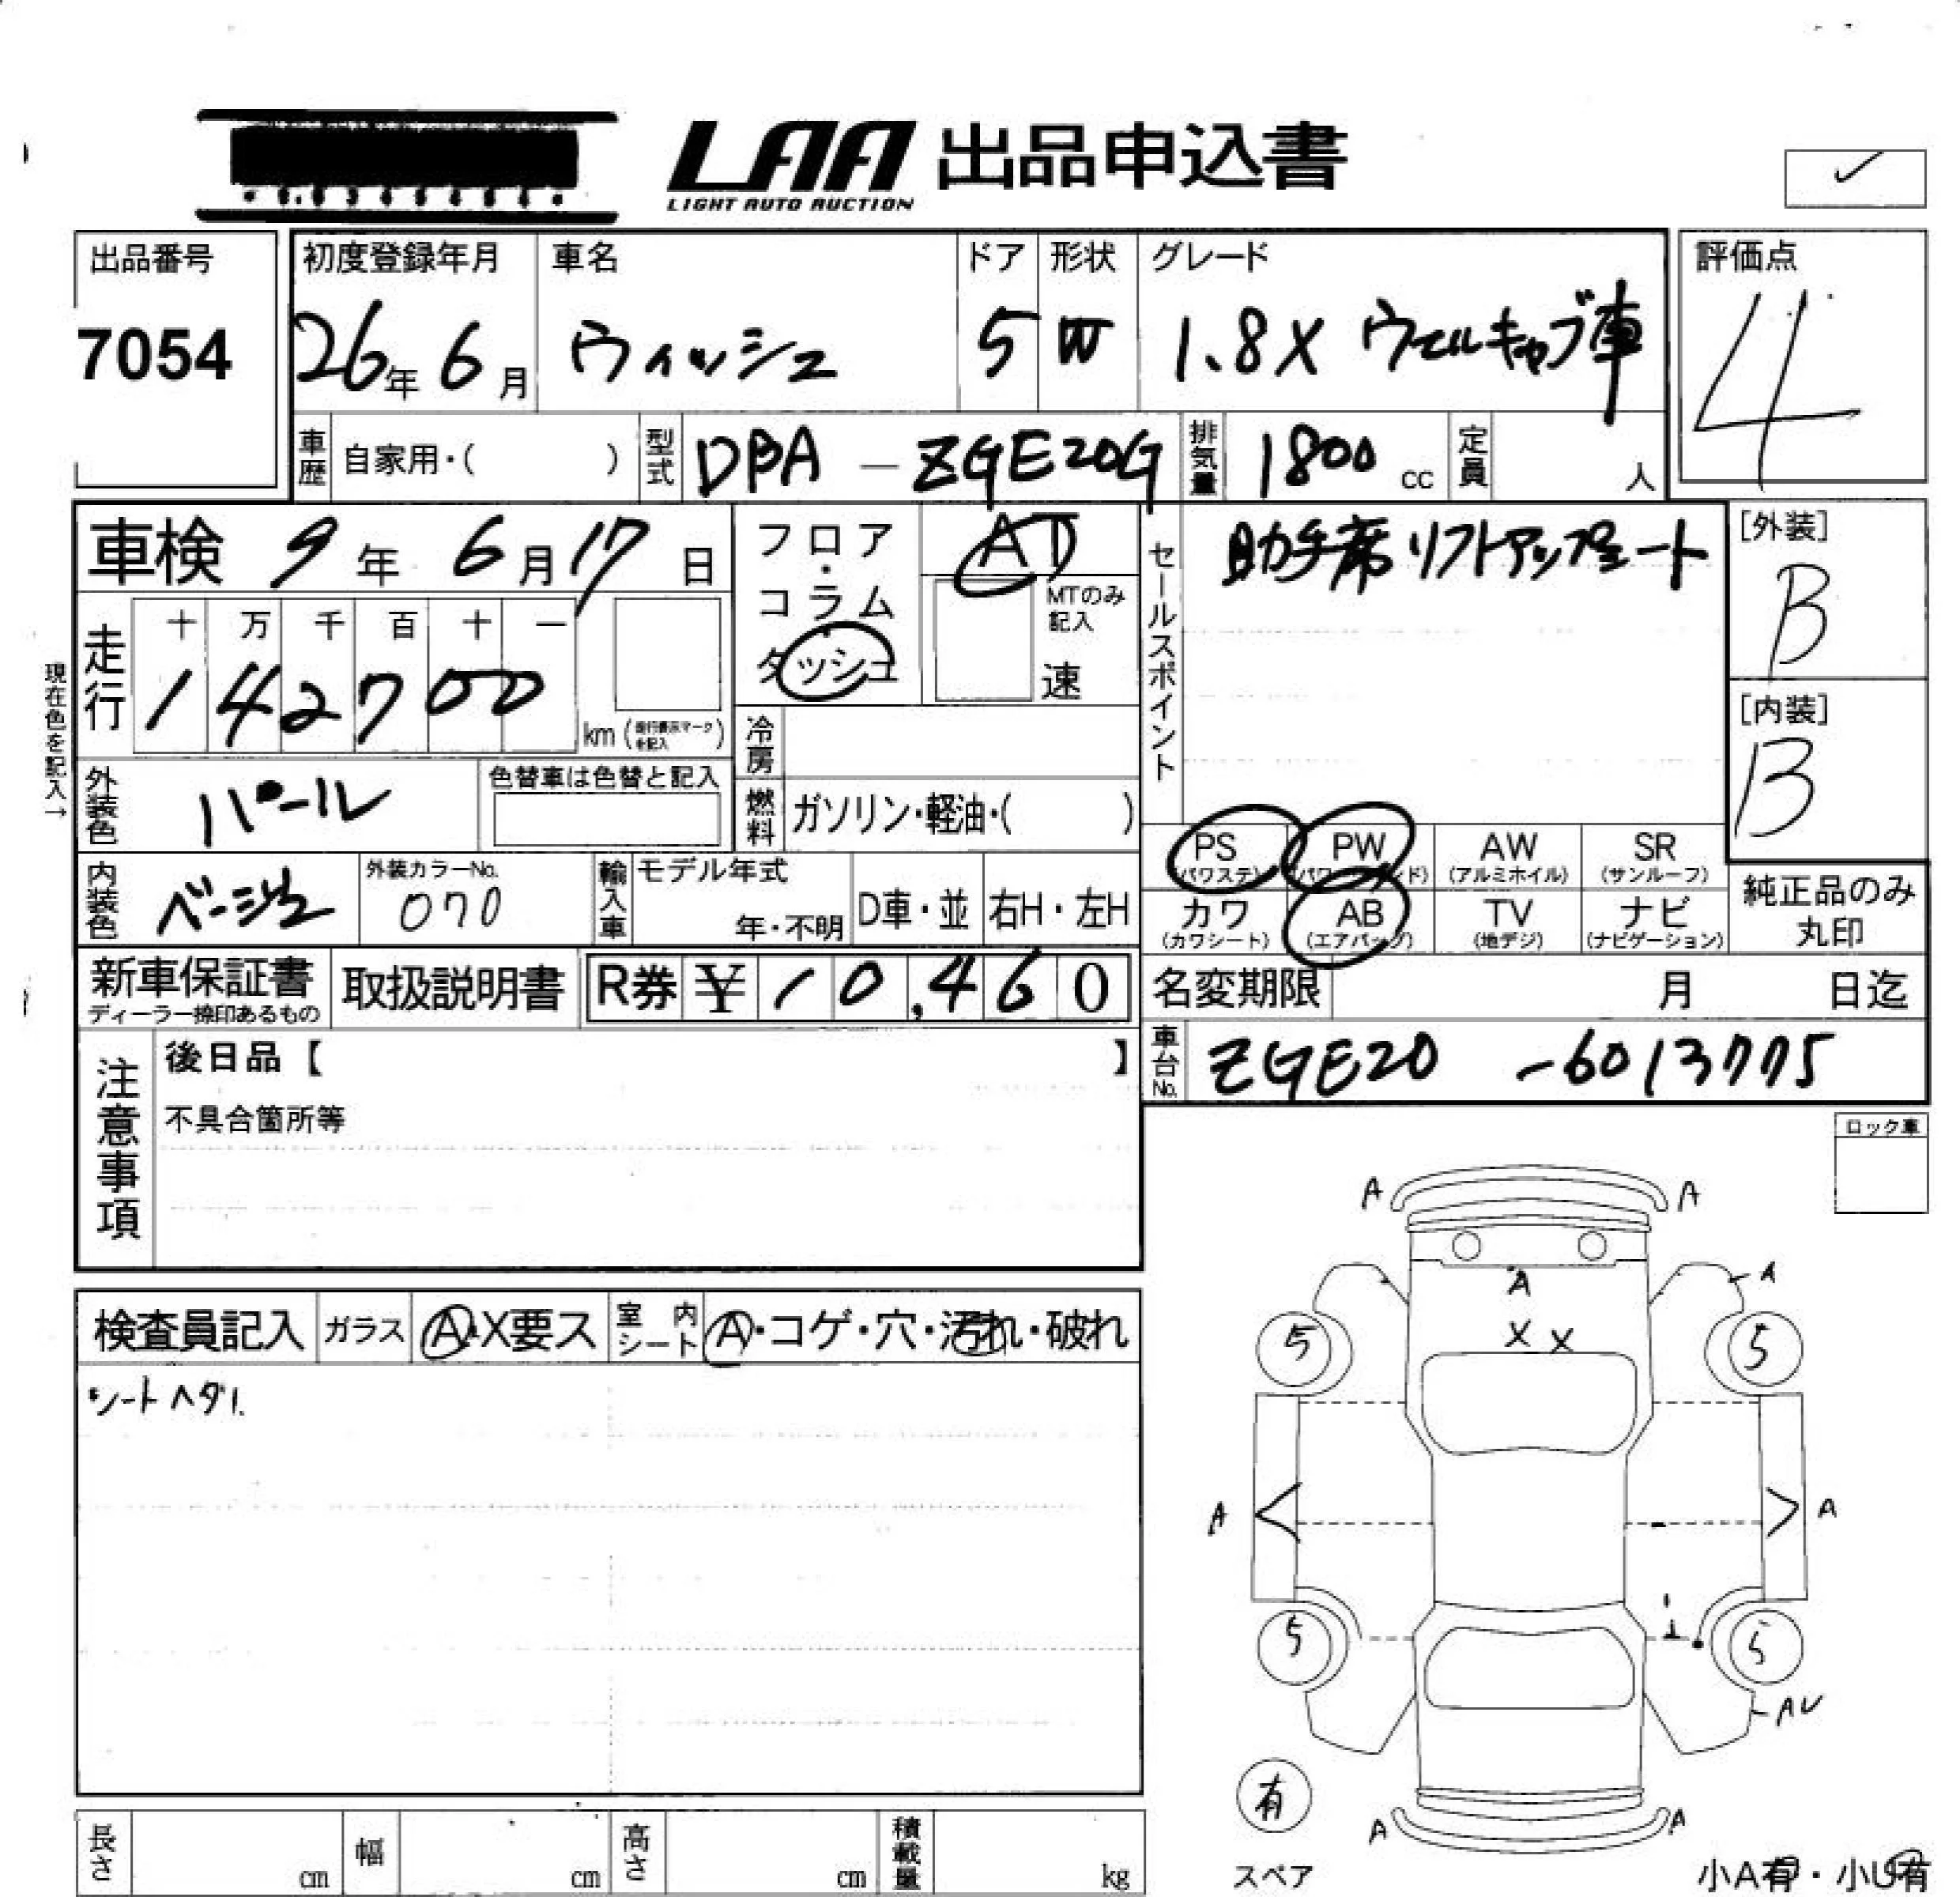 LAA 出品申込書
LIGHT AUTO AUCTION
出品番号
7054
初度登録年月
26年 6月
車名
ウィッシュ
ドア
5
形状
W
グレード
1.8X ウェルキャブ車
評価点
4
車歴 自家用・( )
型式 DBA - ZGE20G
排気量 1800 cc
定員 人
車検 9年 6月 17日
走行
十 万 千 百 十 一
1 4 2 7 0 0
km (走行表示マークを記入)
現在色を記入→
フロア・コラム・ダッシュ
AT
MTのみ記入
速
冷房
燃料 ガソリン・軽油・( )
セールスポイント
助手席リフトアップシート
[外装]
B
[内装]
B
外装色 パール
色替車は色替と記入
内装色 ベージュ
外装カラーNo.
070
輸入車
モデル年式
年・不明
D車・並
右H・左H
PS
(パワステ)
PW
AW
(アルミホイル)
SR
(サンルーフ)
カワ
(カワシート)
AB
(エアバッグ)
TV
(地デジ)
ナビ
(ナビゲーション)
純正品のみ
丸印
新車保証書
ディーラー捺印あるもの
取扱説明書
R券 ¥ 10,460
名変期限 月 日迄
車台No. ZGE20 -6013775
注意事項
後日品【 】
不具合箇所等
ロック車
検査員記入
ガラス
A・X要ス
室内シート
A・コゲ・穴・汚れ・破れ
シートヘタリ
A A
A
A
X X
5 5
A A
5 5
AU
有
スペア
A A
長さ cm
幅 cm
高さ cm
積載量 kg
小A有・小U有